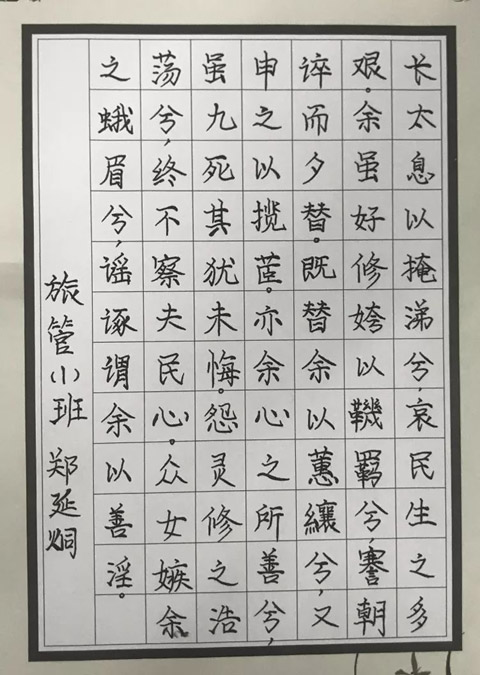 长太息以掩涕兮,哀民生之多
艰。余虽好修姱以鞿羁兮,謇朝
谇而夕替。既替余以蕙纕兮,又
申之以揽茝。亦余心之所善兮,
虽九死其犹未悔。怨灵修之浩
荡兮,终不察夫民心。众女嫉余
之蛾眉兮,谣诼谓余以善淫。
旅管(1)班 郑延炯